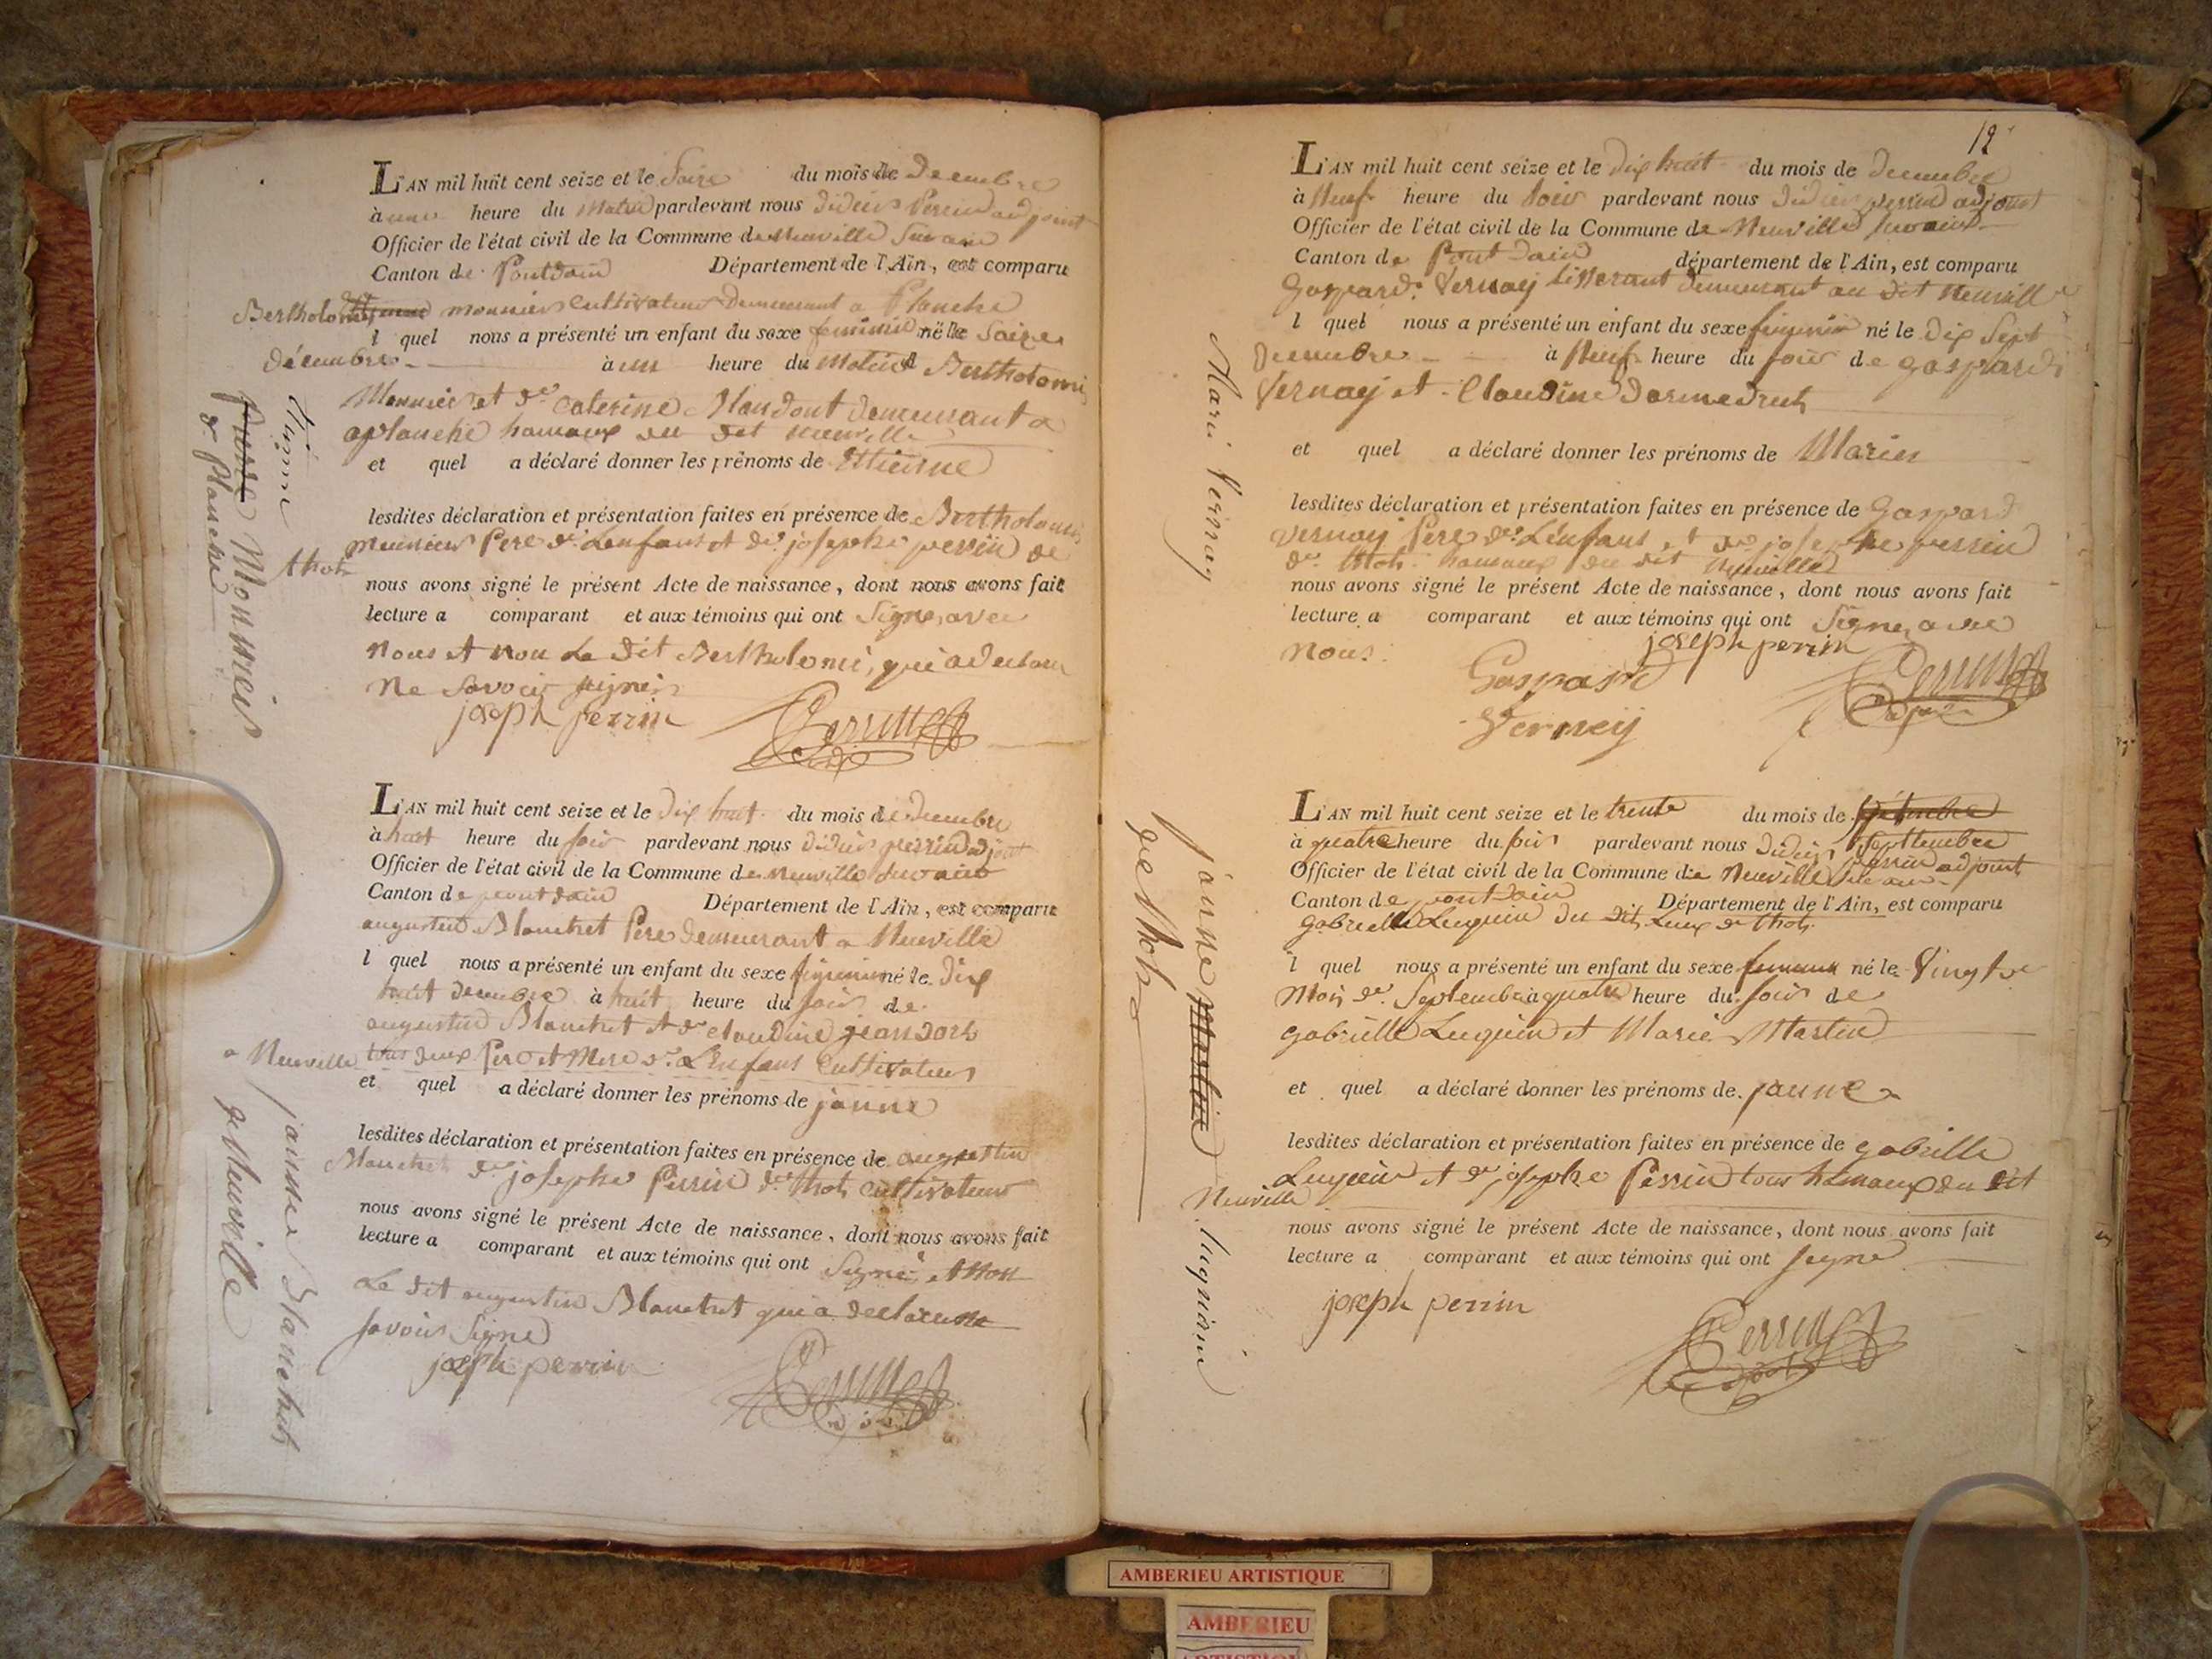 L'AN mil huit cent seize et le Saize du mois de Decembre
à une heure du Matin pardevant nous Didier Perrin adjoint
Officier de l'état civil de la Commune de Neuville Sur ain
Canton de Pontdain Département de l'Ain, est comparu
Bertholomi monnier Cultivateur Demeurant a Planche
l quel nous a présenté un enfant du sexe feminin né le Saize
décembre à une heure du Matin de Bertholomi
Monnier et de Caterine Blandont demeurant a
aplanche hameaux du dit neuville
et quel a déclaré donner les prénoms de Ettienne
lesdites déclaration et présentation faites en présence de Bertholomi
meunier Pere de Lenfant et de josephe perrin de
thot
nous avons signé le présent Acte de naissance, dont nous avons fait
lecture a comparant et aux témoins qui ont Signe avec
Nous et non Le Dit Bertholomi, qui a declare
Ne Savoir Signer
joseph perrin Perrin
pierre Monnier
de Planche
L'AN mil huit cent seize et le Dix huit du mois de Decembre
à huit heure du soir pardevant nous Didier perrin adjoint
Officier de l'état civil de la Commune de Neuville Sur ain
Canton de pont dain Département de l'Ain, est comparu
augustin Blanchet Pere demeurant a Neuville
l quel nous a présenté un enfant du sexe feminin né le Dix
huit decembre à huit heure du soir de
augustin Blanchet et de claudine jeandork
a Neuville tous deux Pere et Mere de L'enfant Cultivateur
et quel a déclaré donner les prénoms de janne
lesdites déclaration et présentation faites en présence de augustin
Blanchet de josephe Perrin de thot Cultivateur
nous avons signé le présent Acte de naissance, dont nous avons fait
lecture a comparant et aux témoins qui ont Signé et Non
Le dit augustin Blanchet qui a declare ne
Savoir Signe
joseph perrin Perrin
janne Blanchet
de Neuville
12
L'AN mil huit cent seize et le Dix huit du mois de Decembre
à Neuf heure du Soir pardevant nous Didier perrin adjoint
Officier de l'état civil de la Commune de Neuville Sur ain
Canton de Pont Dain département de l'Ain, est comparu
Gaspard Vernay tisserant demeurant au dit Neuville
l quel nous a présenté un enfant du sexe feminin né le Dix Sept
Decembre à Neuf heure du soir de gaspard
Vernay et Claudine
et quel a déclaré donner les prénoms de Marie
lesdites déclaration et présentation faites en présence de Gaspard
Vernay Pere de L'enfant et de josephe perrin
de thot hameaux du dit Neuville
nous avons signé le présent Acte de naissance, dont nous avons fait
lecture a comparant et aux témoins qui ont Signe avec
Nous
joseph perrin
Gaspard
Verney
Perrin
adjoint
Marie Vernay
L'AN mil huit cent seize et le trente du mois de Septembre
Septtembre
à quatre heure du soir pardevant nous Didier perrin adjoint
Officier de l'état civil de la Commune de Neuville Sur ain
Canton de pont Dain Département de l'Ain, est comparu
gabrielle Luquin du dit Lieux de thot
l quel nous a présenté un enfant du sexe feminin né le Vingt
Mois de Septembre à quatre heure du soir de
gabrielle Luquin et Marie Martin
et quel a déclaré donner les prénoms de janne
lesdites déclaration et présentation faites en présence de gabrielle
Luquin et de josephe Perrin tous hameaux du dit
Neuville
nous avons signé le présent Acte de naissance, dont nous avons fait
lecture a comparant et aux témoins qui ont signe
joseph perrin Perrin
janne Martin Luquin
de thot
AMBERIEU ARTISTIQUE
AMBERIEU
ARTISTIQUE